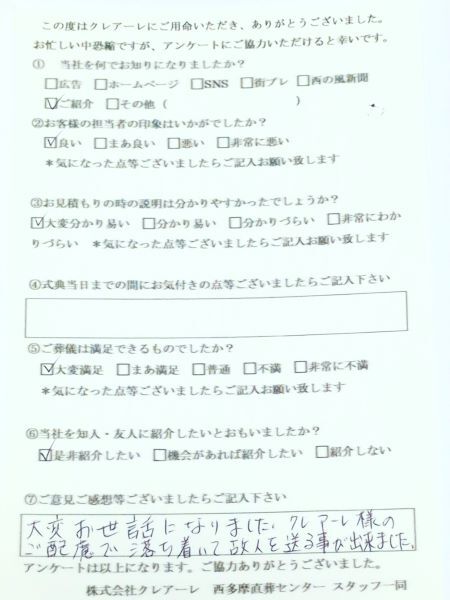 この度はクレアーレにご用命いただき、ありがとうございました。
お忙しい中恐縮ですが、アンケートにご協力いただけると幸いです。
① 当社を何でお知りになりましたか?
□広告 □ホームページ □SNS □街プレ □西の風新聞
☑ご紹介 □その他 ( )
②お客様の担当者の印象はいかがでしたか?
☑良い □まあ良い □悪い □非常に悪い
*気になった点等ございましたらご記入お願い致します
③お見積もりの時の説明は分かりやすかったでしょうか?
☑大変分かり易い □分かり易い □分かりづらい □非常にわか
りづらい *気になった点等ございましたらご記入お願い致します
④式典当日までの間にお気付きの点等ございましたらご記入下さい
⑤ご葬儀は満足できるものでしたか?
☑大変満足 □まあ満足 □普通 □不満 □非常に不満
*気になった点等ございましたらご記入お願い致します
⑥当社を知人・友人に紹介したいとおもいましたか?
☑是非紹介したい □機会があれば紹介したい □紹介しない
⑦ご意見ご感想等ございましたらご記入下さい
大変お世話になりました。クレアーレ様の
ご配慮で落ち着いて故人を送る事が出来ました。
アンケートは以上になります。ご協力ありがとうございました。
株式会社クレアーレ 西多摩直葬センター スタッフ一同